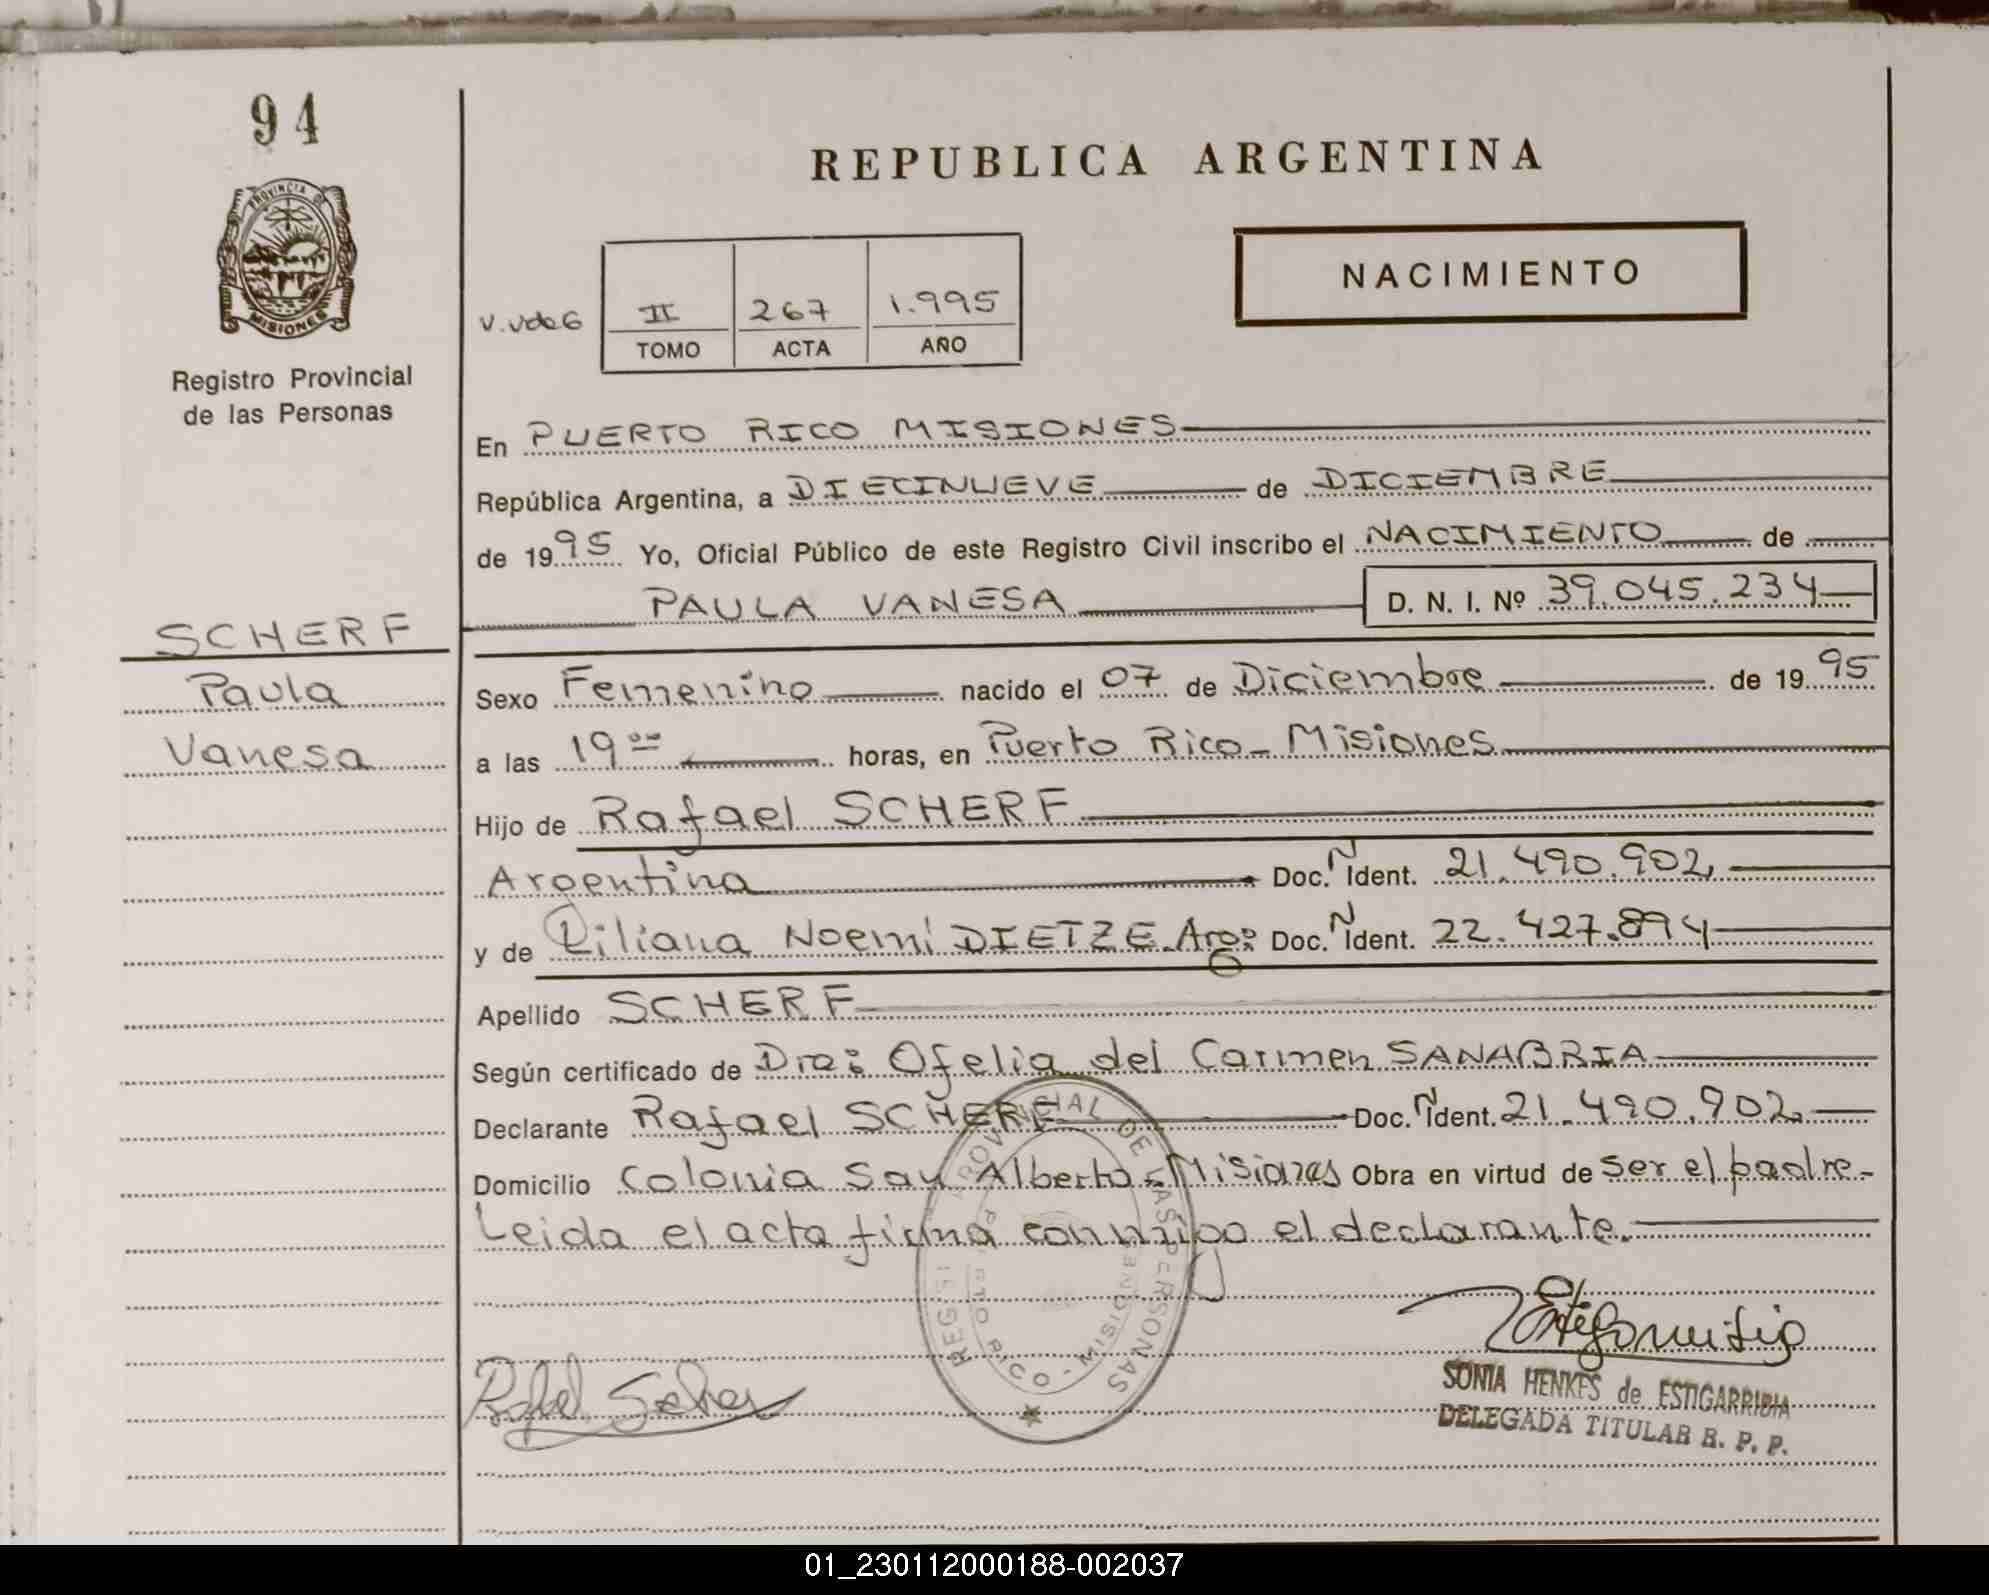 94
PROVINCIA DE
MISIONES
Registro Provincial
de las Personas
SCHERF
Paula
Vanesa
REPUBLICA ARGENTINA
NACIMIENTO
V.Vde6
II 267 1.995
TOMO ACTA AÑO
En PUERTO RICO MISIONES
República Argentina, a DIECINUEVE de DICIEMBRE
de 1995 Yo, Oficial Público de este Registro Civil inscribo el NACIMIENTO de
PAULA VANESA D. N. I. Nº 39.045.234
Sexo Femenino nacido el 07 de Diciembre de 1995
a las 19 00 horas, en Puerto Rico - Misiones
Hijo de Rafael SCHERF
Argentina Doc. Ñ Ident. 21.490.902
y de Liliana Noemí DIETZE. Arg: Doc. Ñ Ident. 22.427.894
Apellido SCHERF
Según certificado de Dra: Ofelia del Carmen SANABRIA
Declarante Rafael SCHERF Doc. Ñ Ident. 21.490.902
Domicilio Colonia San Alberto - Misiones Obra en virtud de ser el padre-
Leida el acta firma conmigo el declarante.
REGISTRO PROVINCIAL DE LAS PERSONAS
PTO RICO - MISIONES
Rafael Scherf
SONIA HENKES de ESTIGARRIBIA
DELEGADA TITULAR R. P. P.
01_230112000188-002037